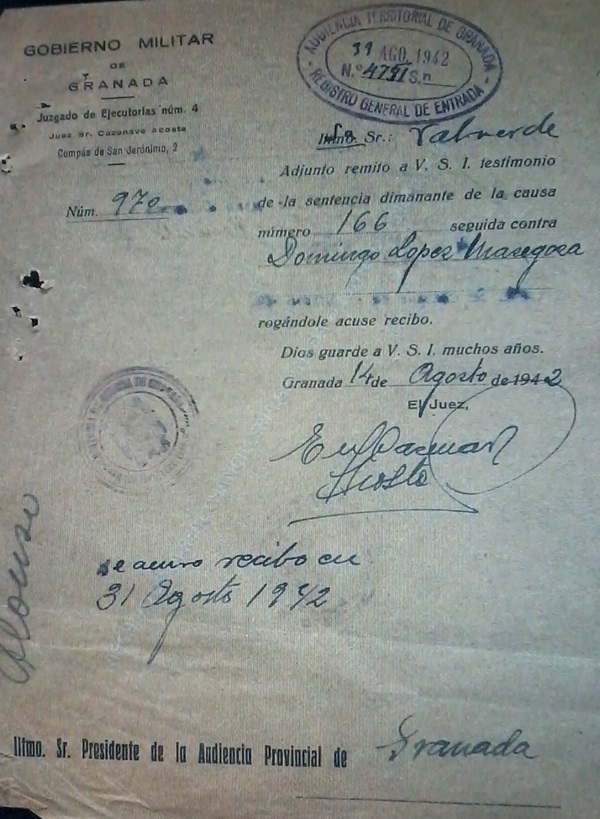 GOBIERNO MILITAR
DE
GRANADA
Juzgado de Ejecutorias núm. 4
Juez Sr. Cazenave Acosta
Compás de San Jerónimo, 2
Núm. 970
AUDIENCIA TERRITORIAL DE GRANADA
31 AGO. 1942
N.º 4791 S.n
REGISTRO GENERAL DE ENTRADA
Iltmo. Sr.: Valverde
Adjunto remito a V. S. I. testimonio
de la sentencia dimanante de la causa
número 166 seguida contra
Domingo Lopez Masegosa
rogándole acuse recibo.
Dios guarde a V. S. I. muchos años.
Granada 14 de Agosto de 1942
El Juez,
Acosta
se acuso recibo en
31 Agosto 1942
Alonso
Iltmo. Sr. Presidente de la Audiencia Provincial de Granada